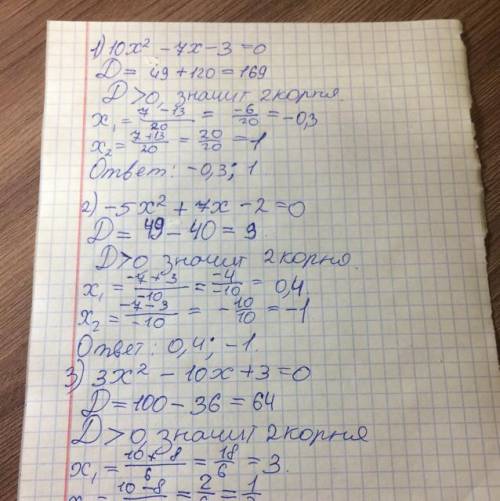 1) 10x² - 7x - 3 = 0
D = 49 + 120 = 169
D > 0, значит 2 корня.
x₁ = (7 - 13)/20 = -6/20 = -0,3
x₂ = (7 + 13)/20 = 20/20 = 1
Ответ: -0,3; 1
2) -5x² + 7x - 2 = 0
D = 49 - 40 = 9
D > 0, значит 2 корня.
x₁ = (-7 + 3)/-10 = -4/-10 = 0,4.
x₂ = (-7 - 3)/-10 = -10/10 = -1
Ответ: 0,4; -1.
3) 3x² - 10x + 3 = 0
D = 100 - 36 = 64
D > 0, значит 2 корня
x₁ = (10 + 8)/6 = 18/6 = 3.
(10 - 8) = 2 = 1